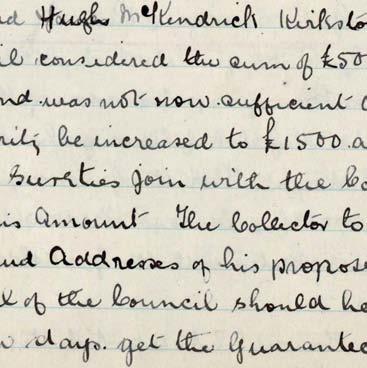 Hugh McKendrick Kirksto
il considered the sum of £50
nd was not now sufficient
rity be increased to £1500 a
Sureties join with the Co
is Amount The Collector to
and Addresses of his propose
l of the Council should he
w days. get the Guarantee